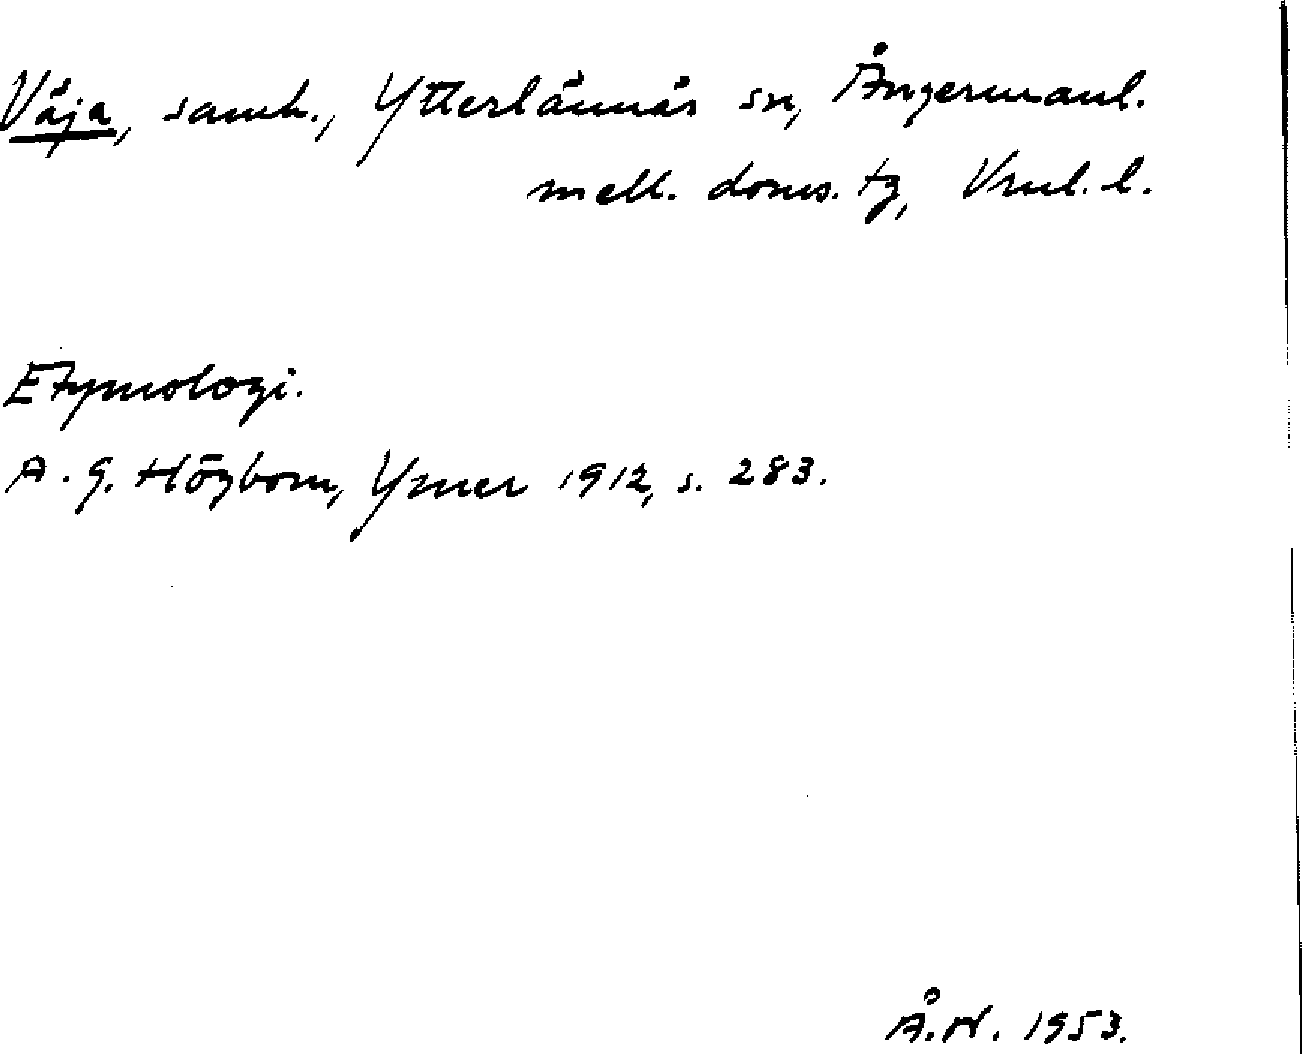 Väja, samh., Ytterlännäs sn, Ångermanl.
mell. doms. tg, Vnul. l.
Etymologi.
A. G. Högbom, Ymer 1912, s. 283.
Å.N. 1953.